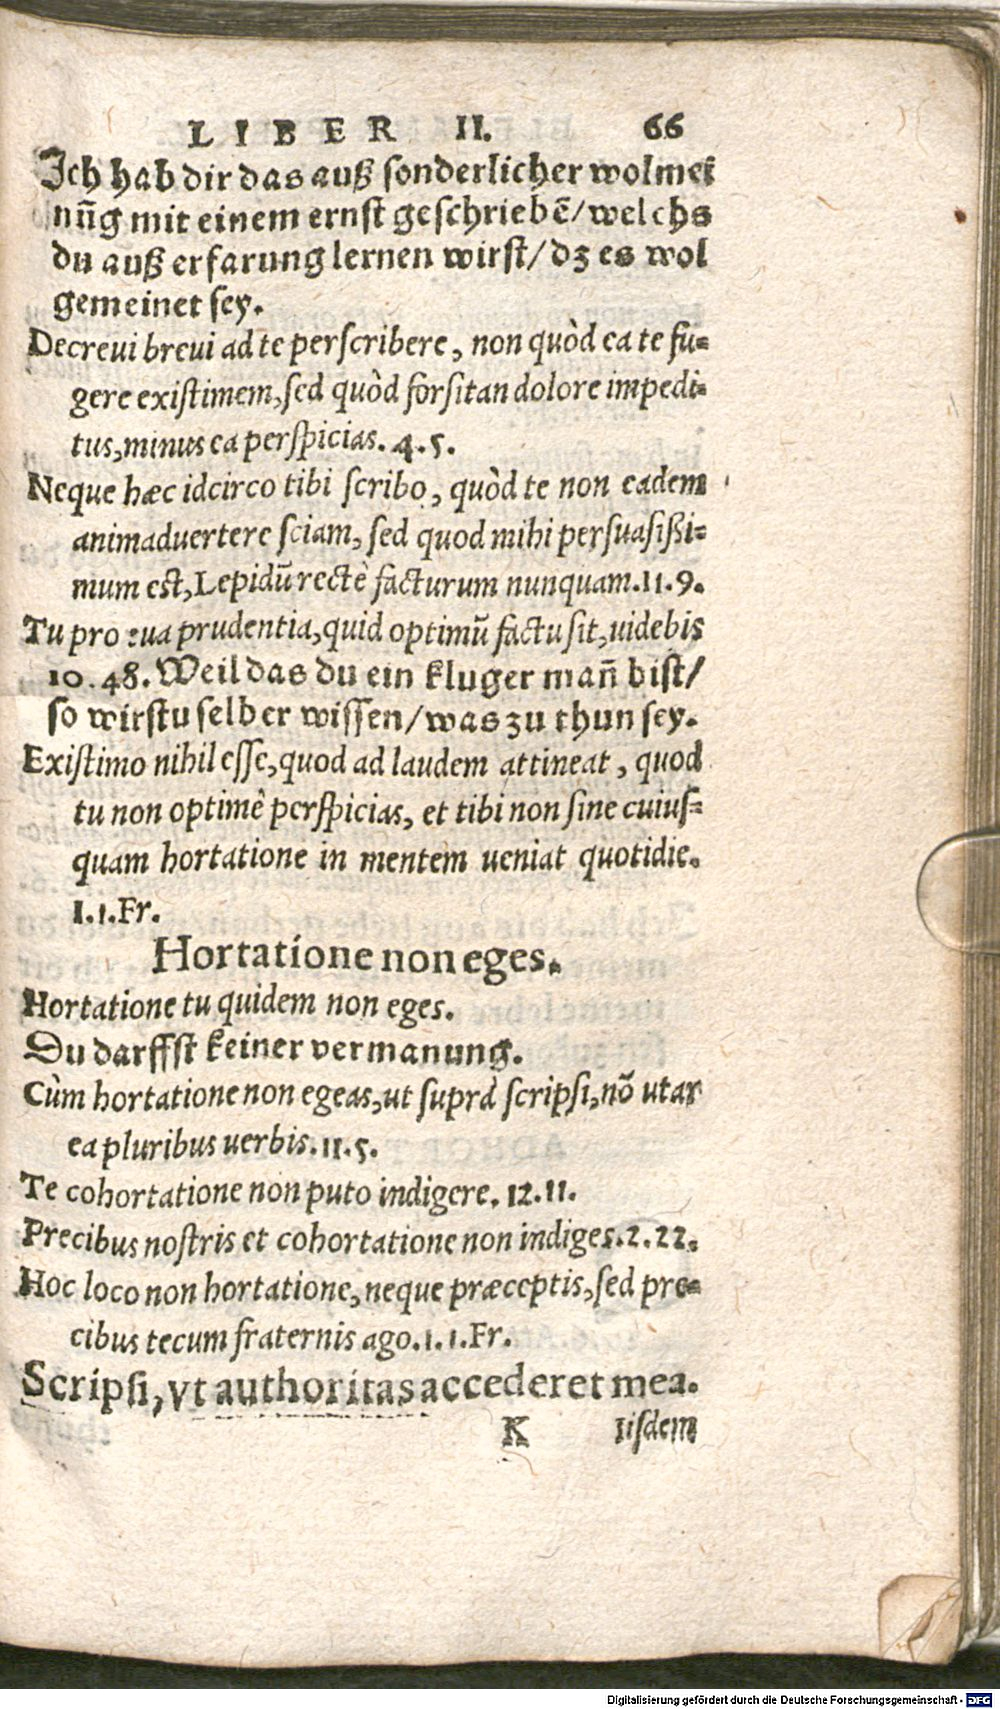 LIBER II. 66
Ich hab dir das auß sonderlicher wolmei
nũg mit einem ernst geschriebẽ/welchs
du auß erfarung lernen wirst/dz es wol
gemeinet sey.
Decrevi brevi ad te perscribere, non quòd ea te fu=
gere existimem, sed quòd forsitan dolore impedi=
tus, minus ea perspicias. 4.5.
Neque hæc idcirco tibi scribo, quòd te non eadem
animadvertere sciam, sed quod mihi persuasißi=
mum est, Lepidũ rectè facturum nunquam. 11.9.
Tu pro tua prudentia, quid optimũ factu sit, uidebis
10.48. Weil das du ein kluger mañ bist/
so wirstu selber wissen/was zu thun sey.
Existimo nihil esse, quod ad laudem attineat, quod
tu non optimè perspicias, et tibi non sine cuius=
quam hortatione in mentem ueniat quotidie.
1.1.Fr.
Hortatione non eges.
Hortatione tu quidem non eges.
Du darffst keiner vermanung.
Cùm hortatione non egeas, ut suprà scripsi, nõ utar
ea pluribus uerbis. 11.5.
Te cohortatione non puto indigere. 12.11.
Precibus nostris et cohortatione non indiges. 2.22.
Hoc loco non hortatione, neque præceptis, sed pre=
cibus tecum fraternis ago. 1.1.Fr.
Scripsi, vt authoritas accederet mea.
K Iisdem
Digitalisierung gefördert durch die Deutsche Forschungsgemeinschaft - DFG